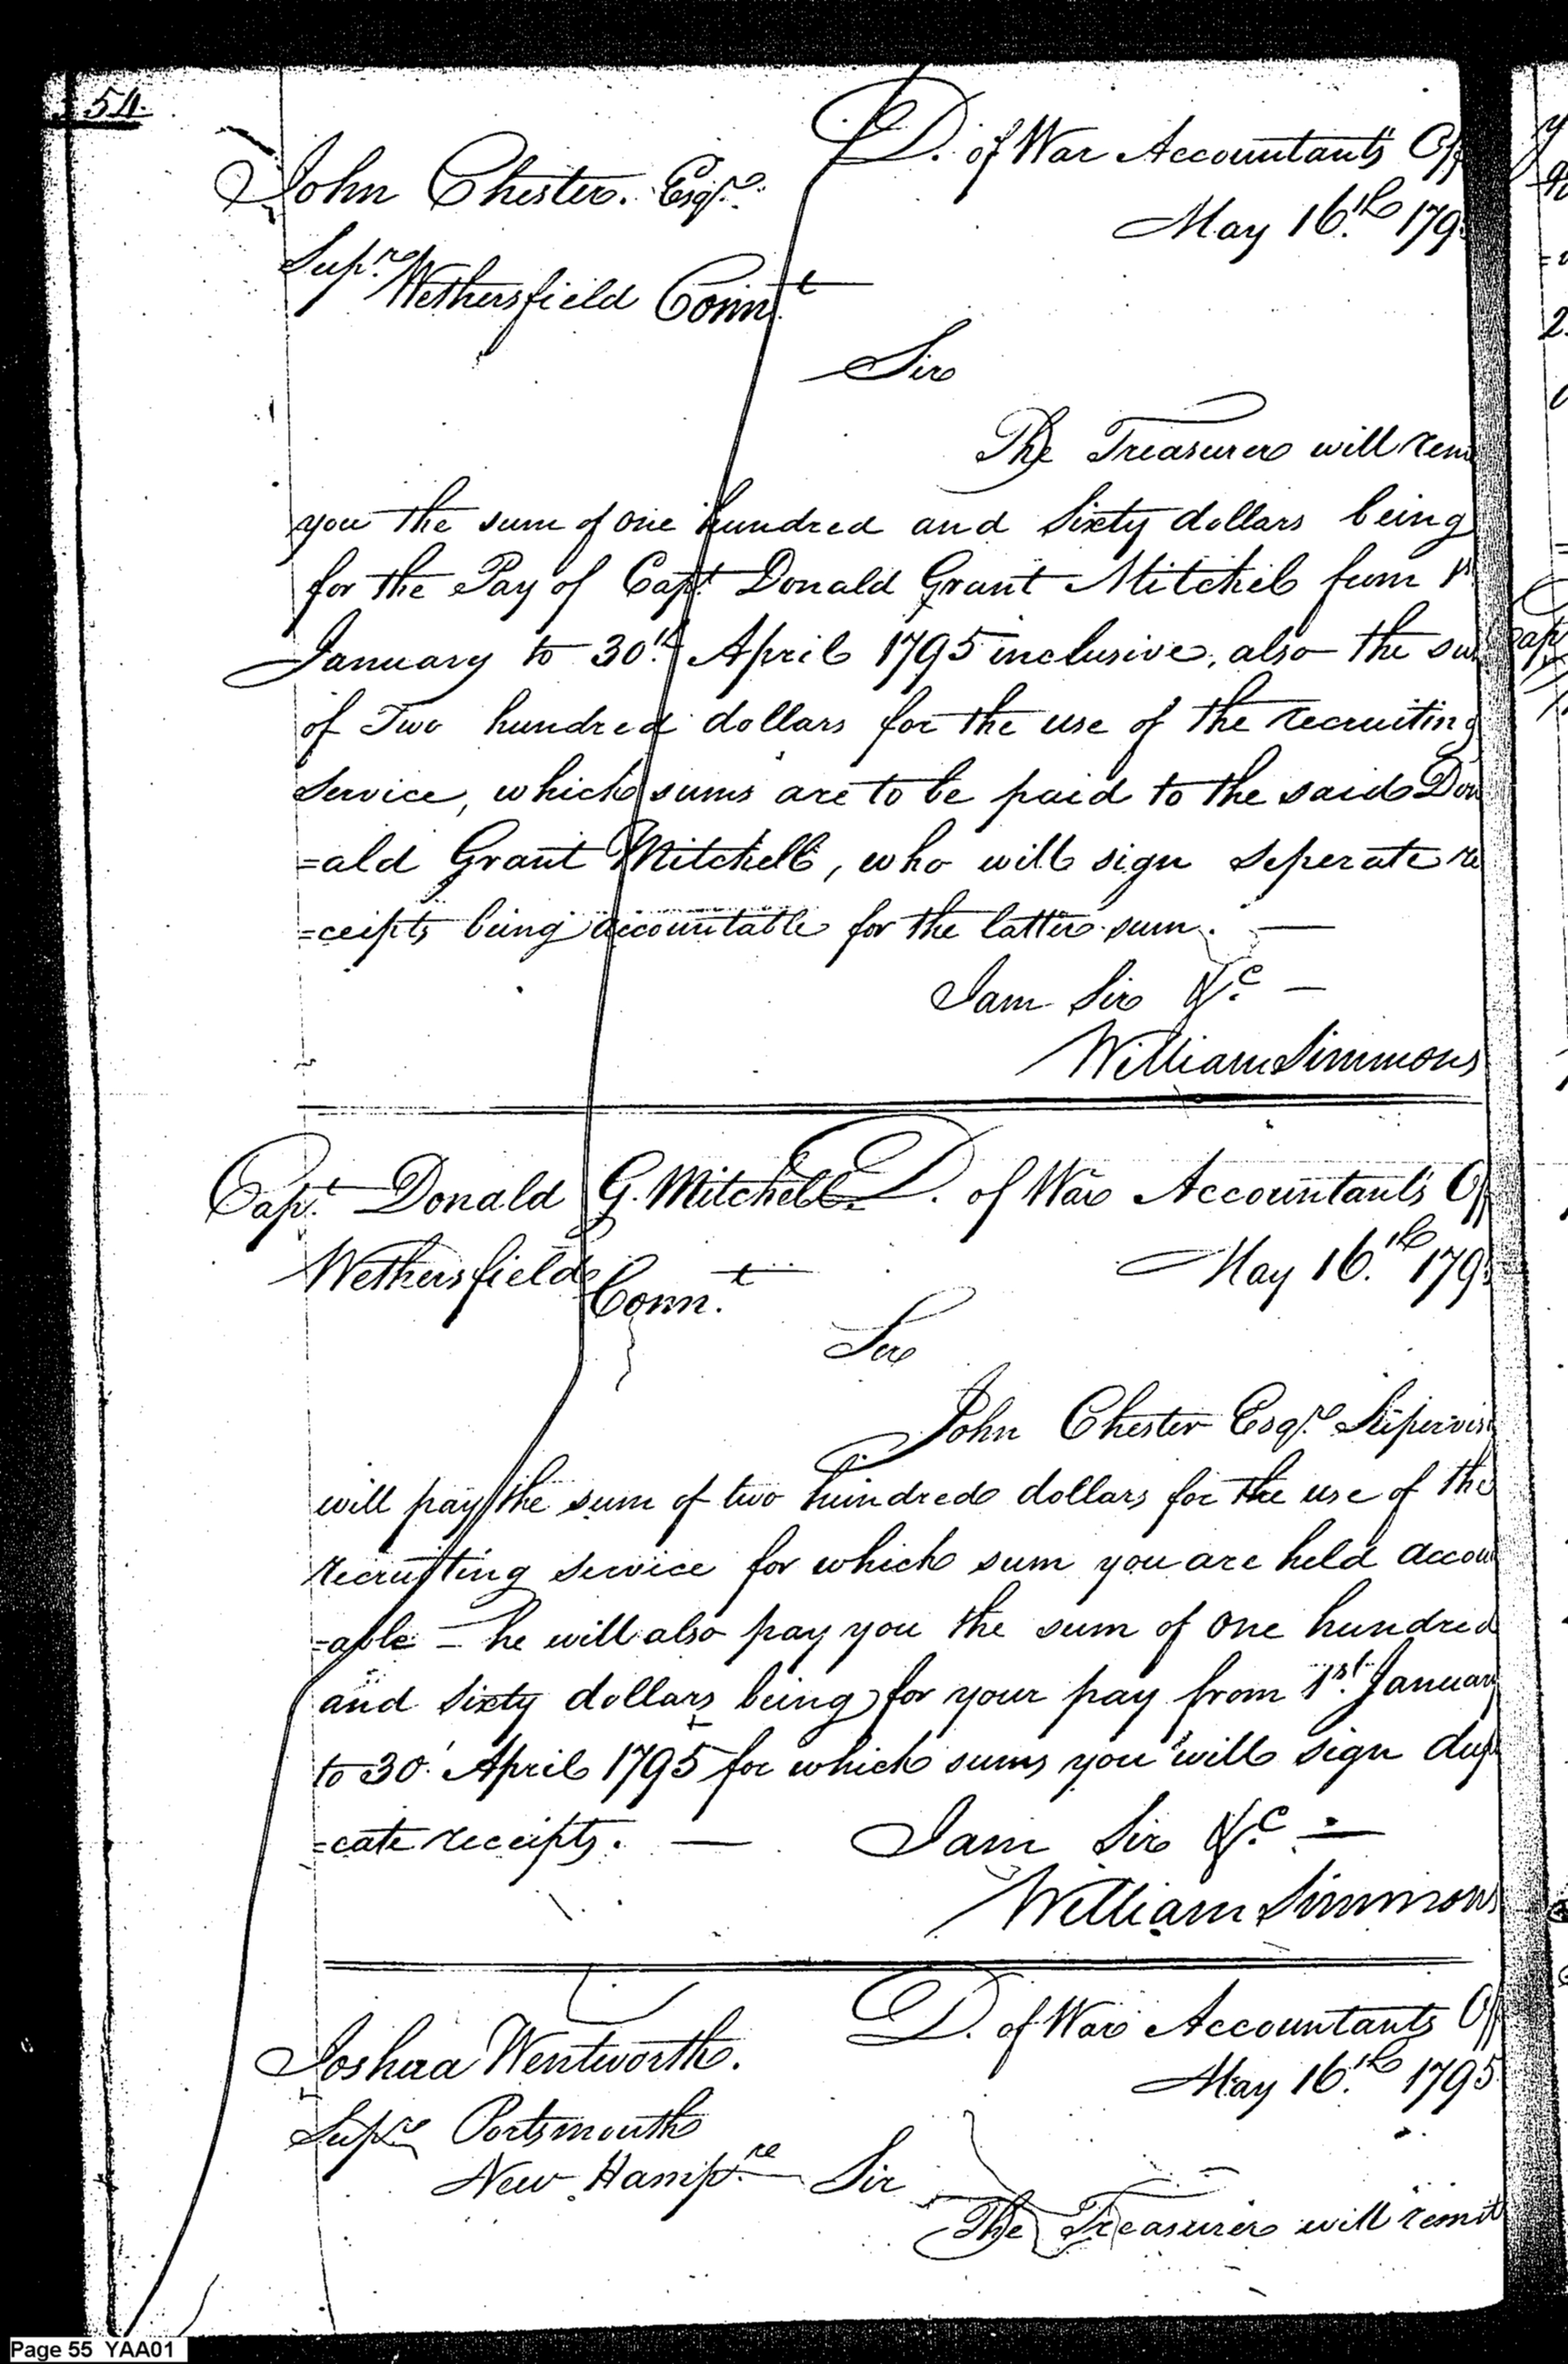 54.
D. of War Accountant's Off
John Chester. Esqre.
May 16.th 179
Supre.
Wethersfield Connt
Sir
The Treasurer will rem
you the sum of one hundred and Sixty dollars being
for the Pay of Capt. Donald Grant Mitchel from 1st
January to 30.th April 1795 inclusive, also the su
of Two hundred dollars for the use of the recruiting
Service, which sums are to be paid to the said Don
=ald Grant Mitchell, who will sign seperate re
=ceipts being accountable for the latter sum. —
I am Sir &c. —
William Simmons
Capt. Donald G. Mitchell. D. of War Accountant's Off
Wethersfield Conn.t
May 16.th 179
Sir
John Chester Esqre. Supervis
will pay the sum of two hundred dollars for the use of the
recruiting service for which sum you are held accou
=able — he will also pay you the sum of one hundred
and Sixty dollars being for your pay from 1st. January
to 30. April 1795 for which sums you will sign dup
=cate receipts. — I am Sir &c. —
William Simmons
D. of War Accountants Off
Joshua Wentworth.
May 16.th 1795
Supre Portsmouth
New Hamp.re Sir
The Treasurer will remit
Page 55 YAA01